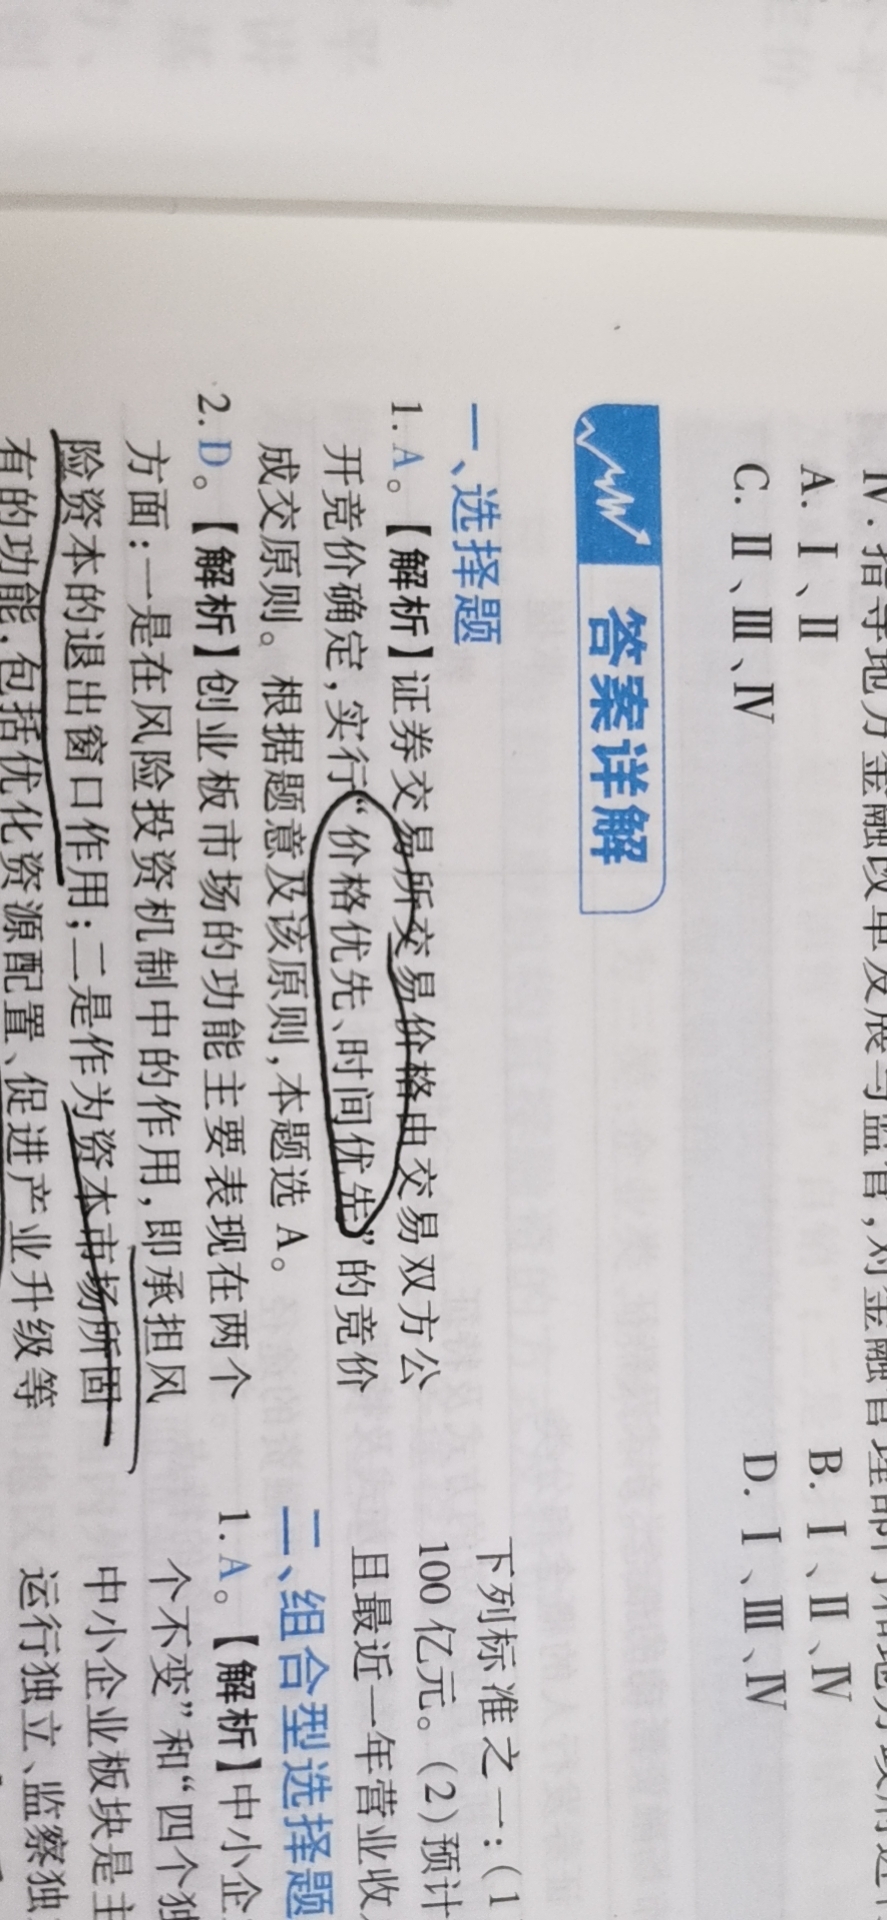 Ⅳ. 指导地方金融改革发展与监管,对金融管理部门和地方政府进行
A. Ⅰ、Ⅱ
B. Ⅰ、Ⅱ、Ⅳ
C. Ⅱ、Ⅲ、Ⅳ
D. Ⅰ、Ⅲ、Ⅳ
答案详解
一、选择题
1. A。【解析】证券交易所交易价格由交易双方公
开竞价确定,实行“价格优先、时间优先”的竞价
成交原则。根据题意及该原则,本题选 A。
2. D。【解析】创业板市场的功能主要表现在两个
方面:一是在风险投资机制中的作用,即承担风
险资本的退出窗口作用;二是作为资本市场所固
有的功能,包括优化资源配置、促进产业升级等
下列标准之一:(1
100 亿元。(2)预计
且最近一年营业收
二、组合型选择题
1. A。【解析】中小企
个不变”和“四个独
中小企业板块是主
运行独立、监察独